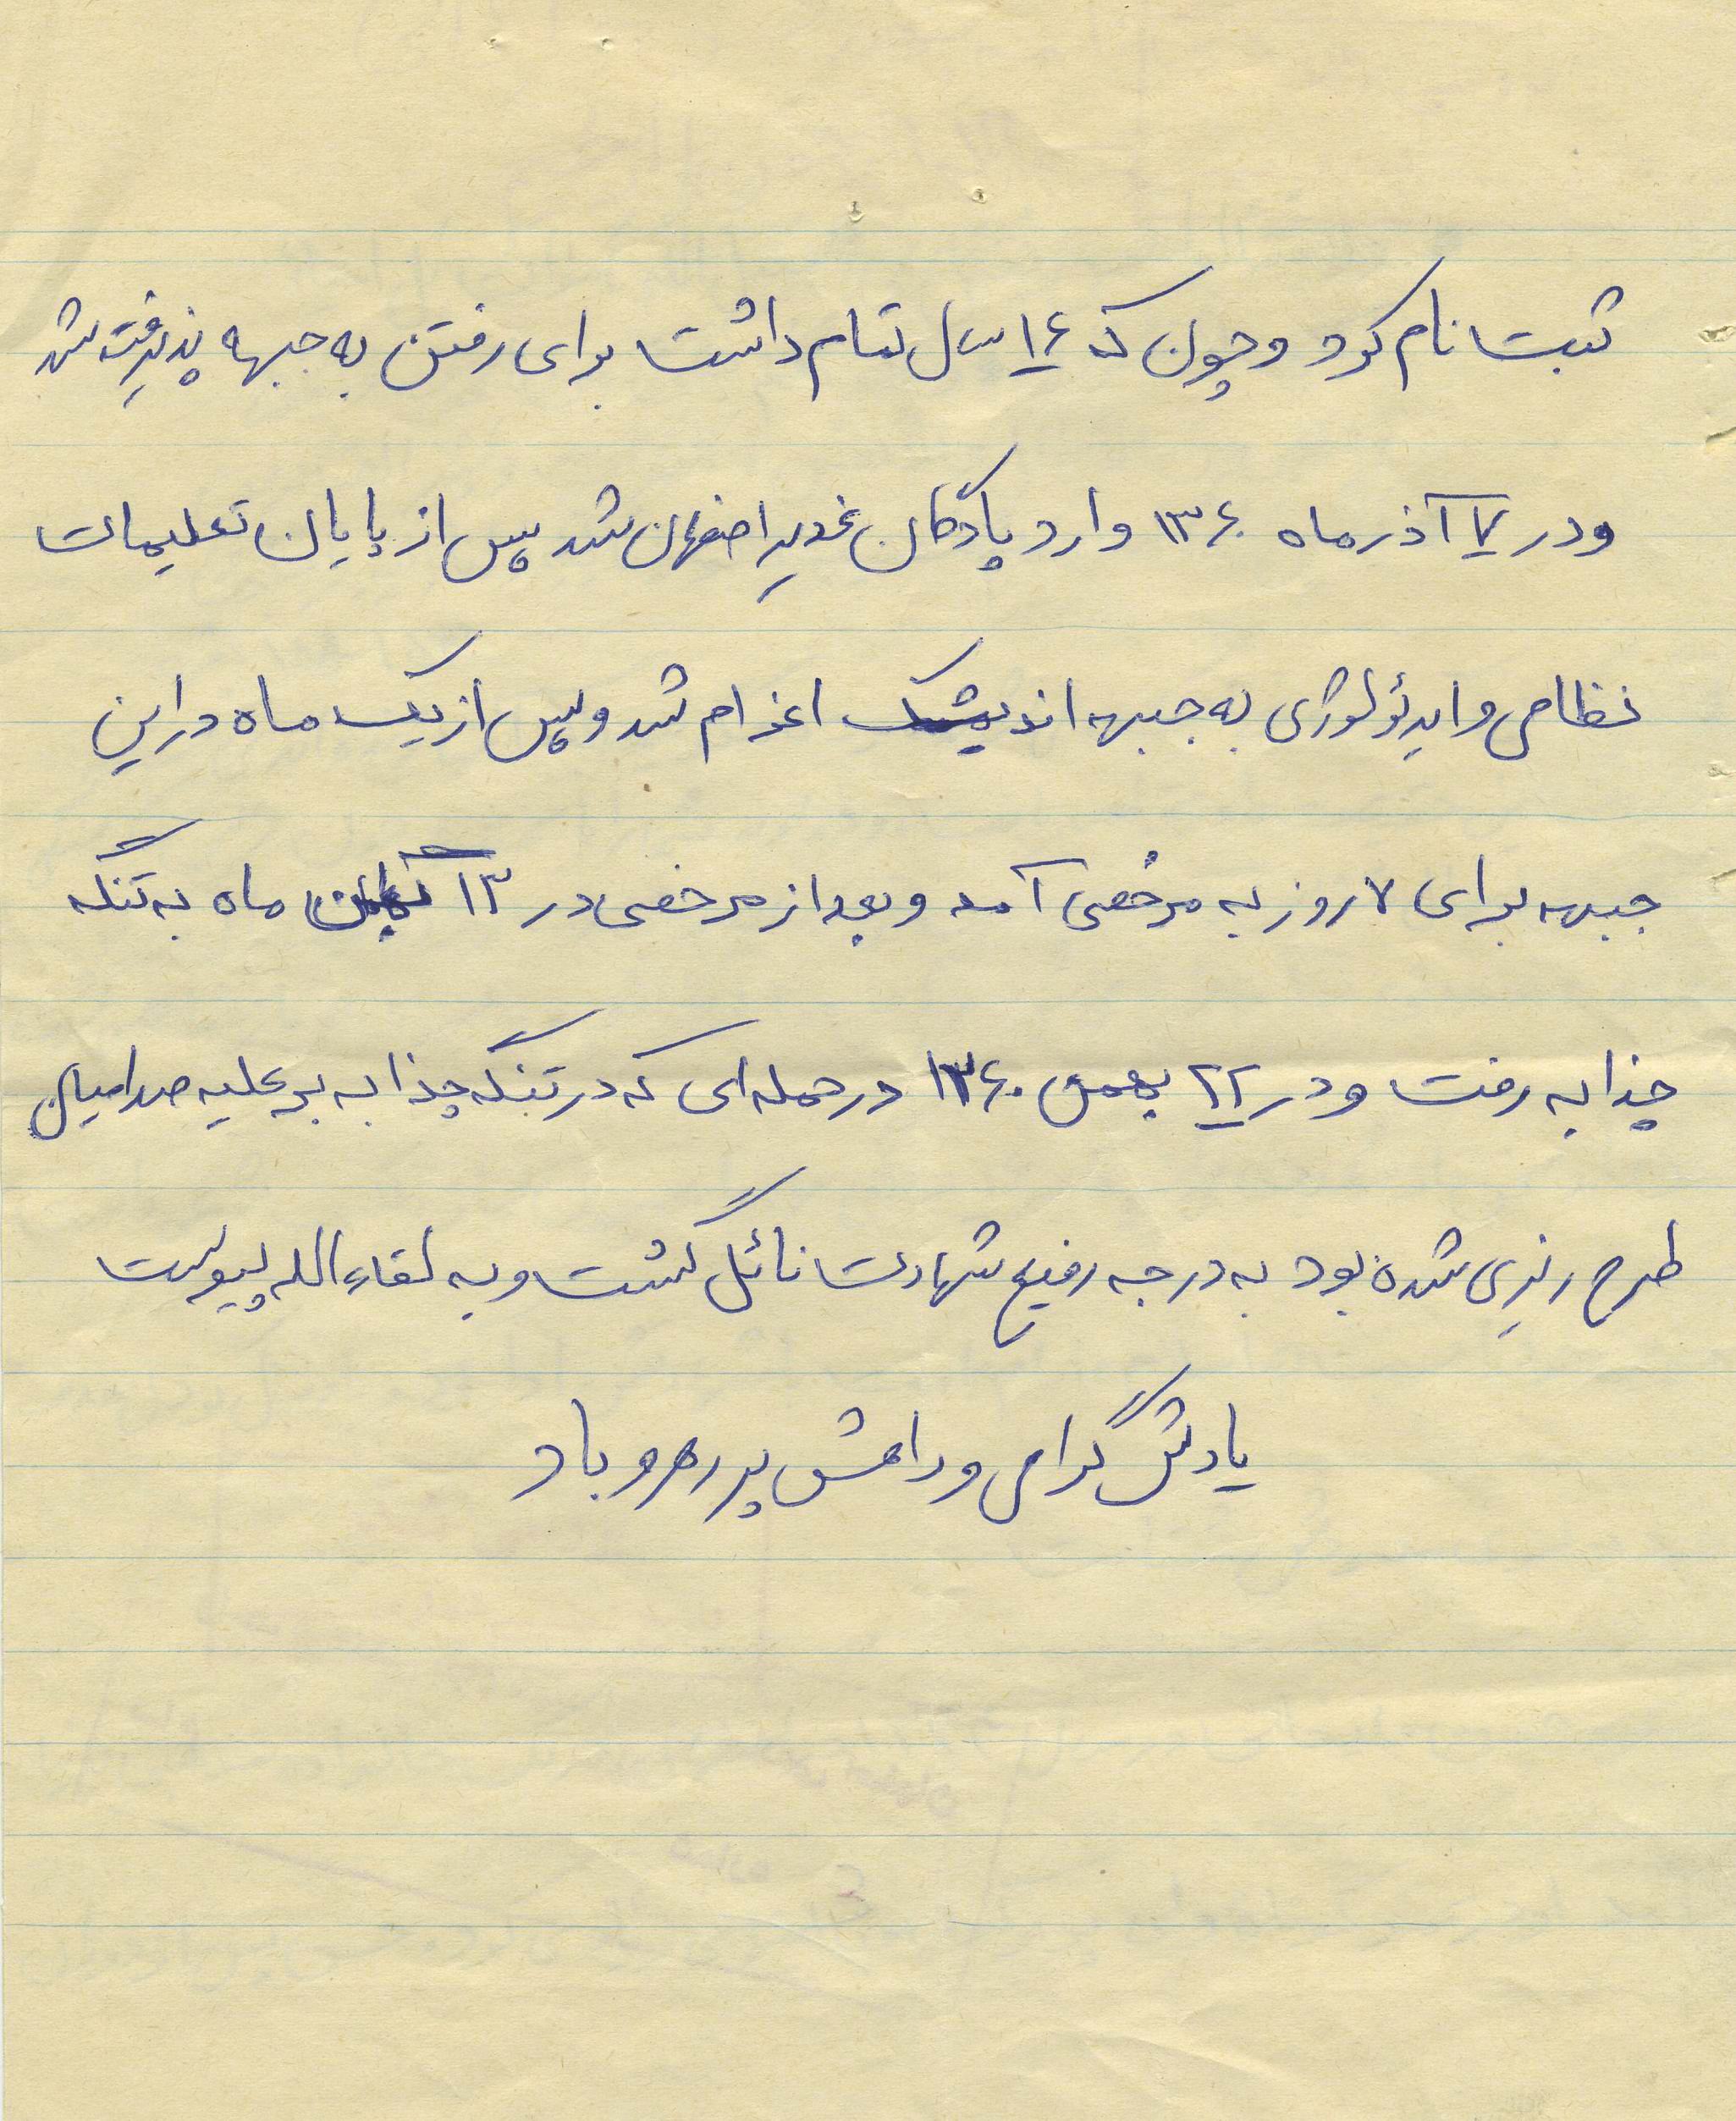 ثبت نام کرد و چون که ۱۶ سال تمام داشت برای رفتن به جبهه پذیرفته شد
و در ۷ آذر ماه ۱۳۶۰ وارد پادگان غدیر اصفهان شد پس از پایان تعلیمات
نظامی و ایدئولوژی به جبهه اندیمشک اعزام شد و پس از یک ماه در این
جبهه برای ۷ روز به مرخصی آمد و بعد از مرخصی در ۱۳ ماه به تنگه
چذابه رفت و در ۲۲ بهمن ۱۳۶۰ در حمله ای که در تنگه چذابه بر علیه صدامیان
طرح ریزی شده بود به درجه رفیع شهادت نائل گشت و به لقاءالله پیوست
یادش گرامی و راهش پر رهرو باد